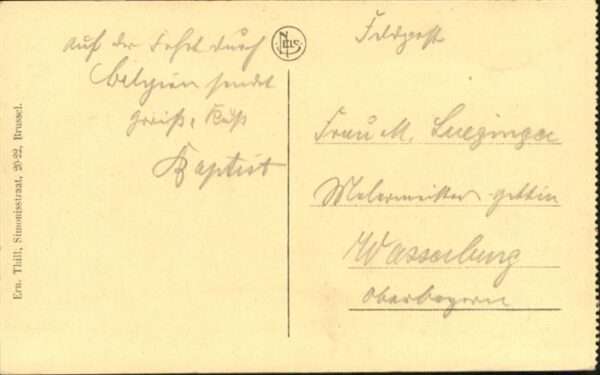 Auf der Fahrt durch
Belgien sendet
Gruß, Kuß
Baptist
Feldpost
Frau M.
Malermeisters gattin
Wasserburg
Oberbayern
Ern. Thill, Simonisstraat, 20-22, Brussel.